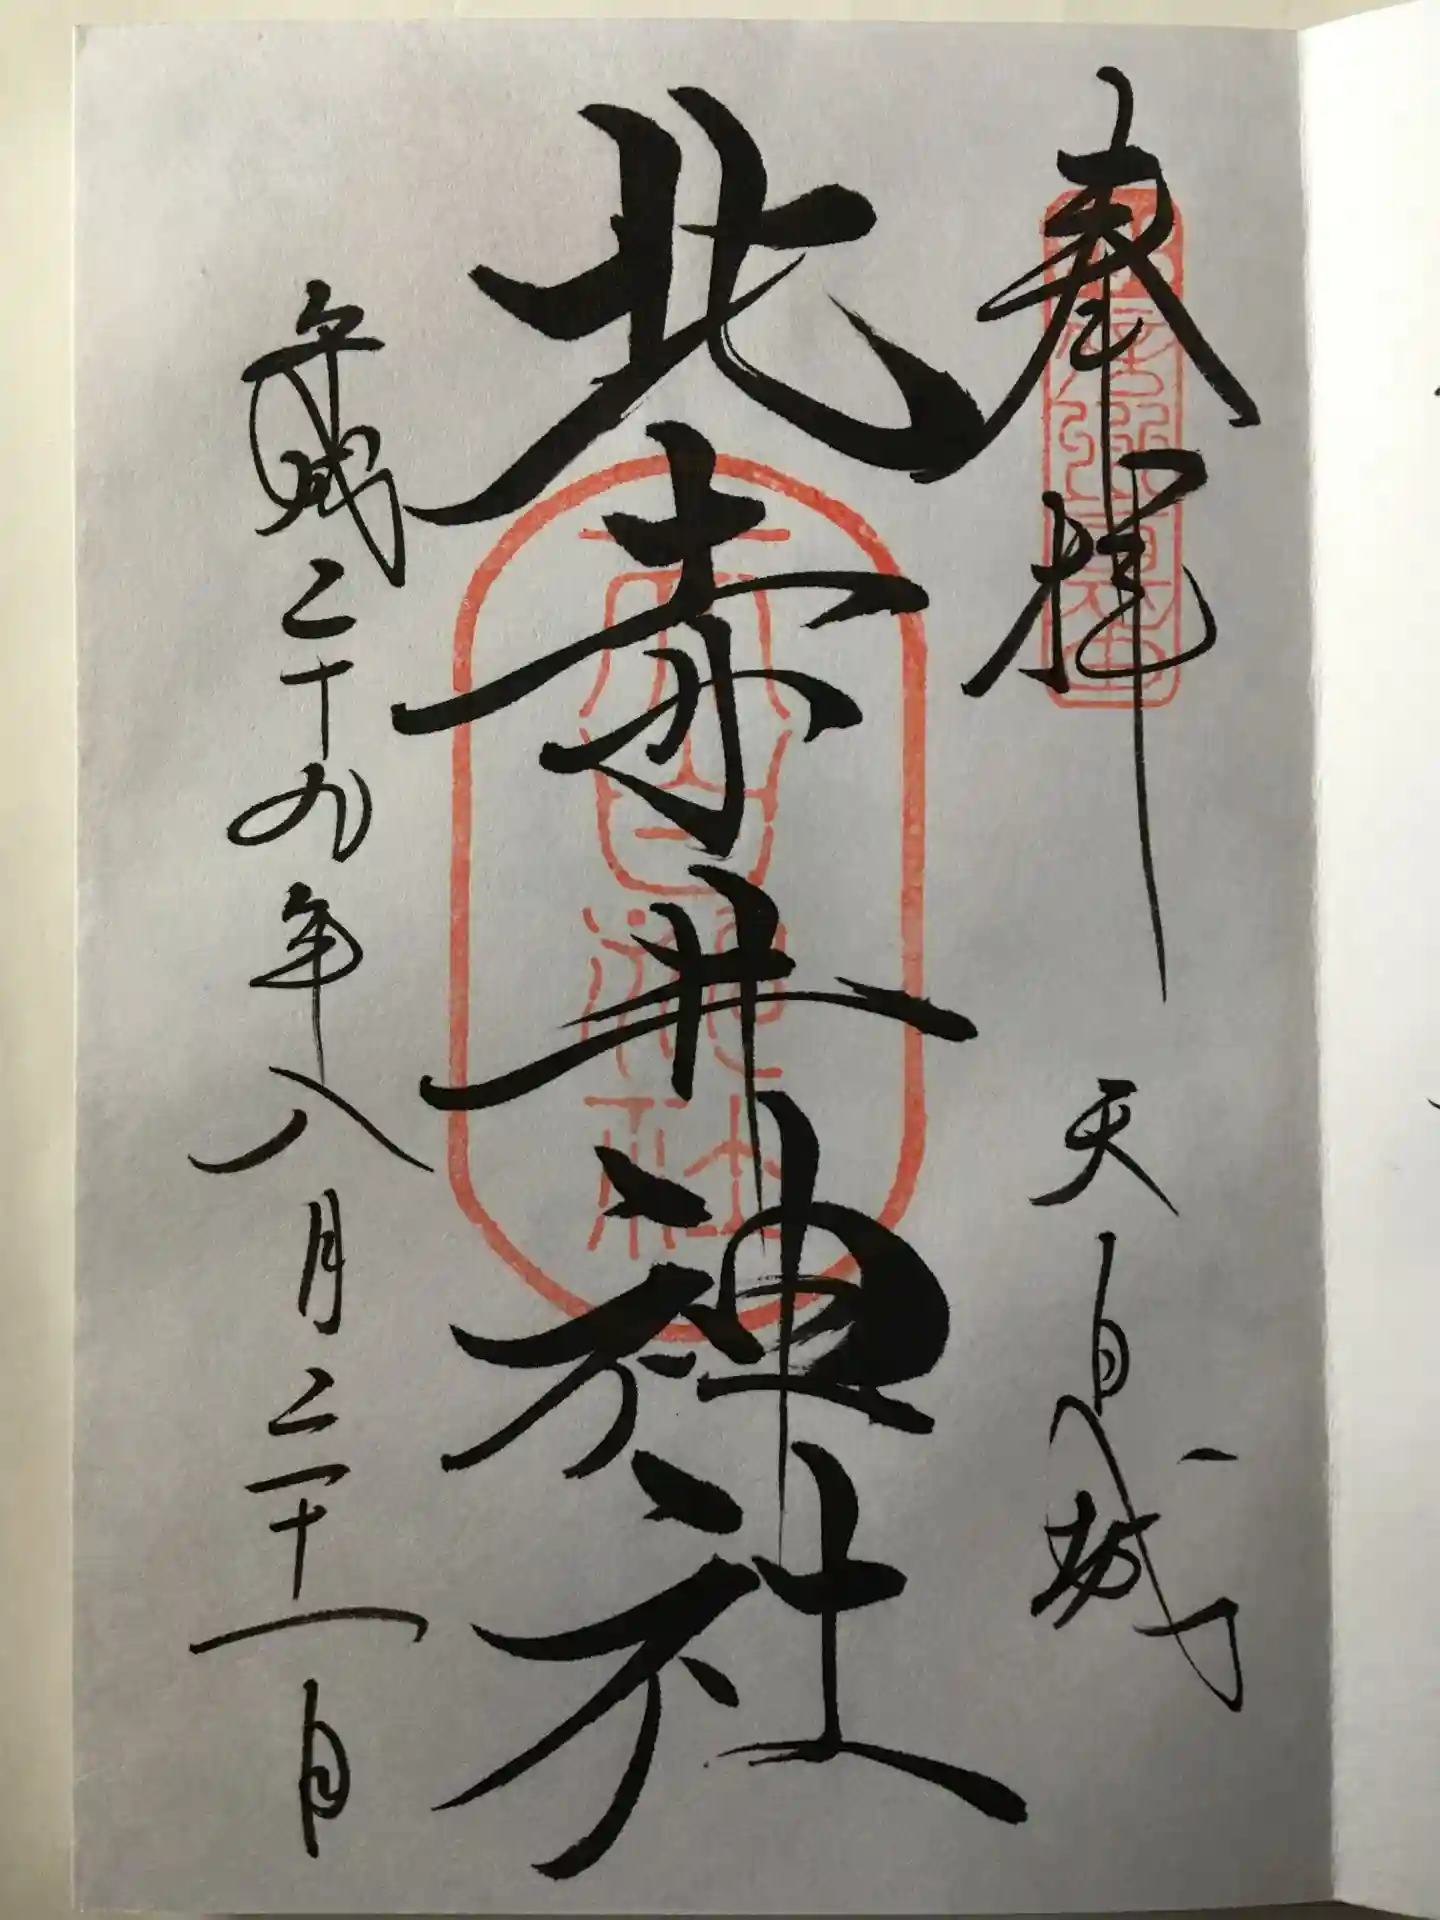 奉拝　天白城
北赤井神社
平成二十九年八月二十一日